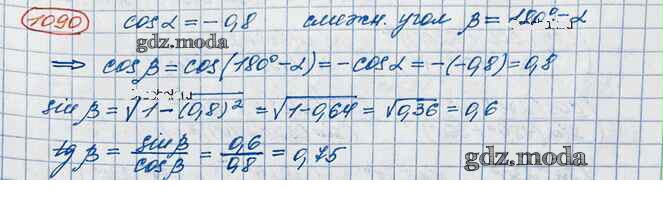 1090 cos α = -0,8 смежн. угол β = 180° - α
gdz.moda
⟹ cos β = cos(180° - α) = -cos α = -(-0,8) = 0,8
sin β = √(1-(0,8)²) = √(1-0,64) = √0,36 = 0,6
tg β = sin β / cos β = 0,6 / 0,8 = 0,75
gdz.moda